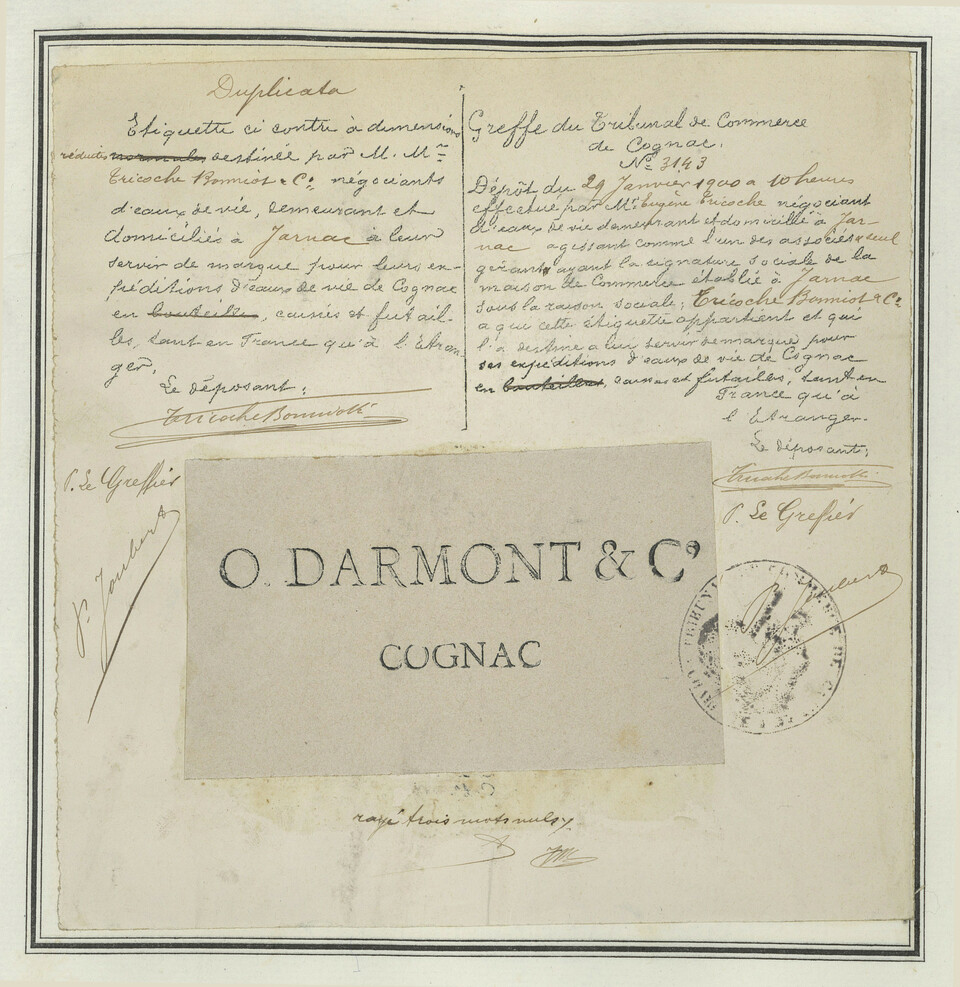 Duplicata
Etiquette ci contre à dimensions
réduites normales destinée par M. Mrs
Tricoche Bonniot & Co négociants
d'eaux de vie, demeurant et
domiciliés à Jarnac à leur
servir de marque pour leurs ex-
péditions d'eaux de vie de Cognac
en bouteilles, caisses et futail-
les, tant en France qu'à l'étran-
ger.
Le déposant:
Tricoche Bonniot & Co
P. Le Greffier
P. Joubert
Greffe du Tribunal de Commerce
de Cognac.
No 3143
Dépôt du 29 Janvier 1900 à 10 heures
effectué par Mr Eugène Tricoche négociant
d'eaux de vie demeurant et domicilié à Jar-
nac agissant comme l'un des associés & seul
gérants ayant la signature sociale de la
maison de Commerce établie à Jarnac
sous la raison sociale; Tricoche Bonniot & Co
a qui cette étiquette appartient et qui
l'a destine a lui servir de marque pour
ses expéditions d'eaux de vie de Cognac
en bouteilles, caisses et futailles, tant en
France qu'à
l'Etranger.
Le déposant;
Tricoche Bonniot & Co
P. Le Greffier
Joubert
O. DARMONT & Co
COGNAC
TRIBUNAL DE COMMERCE DE
rayé trois mots nuls